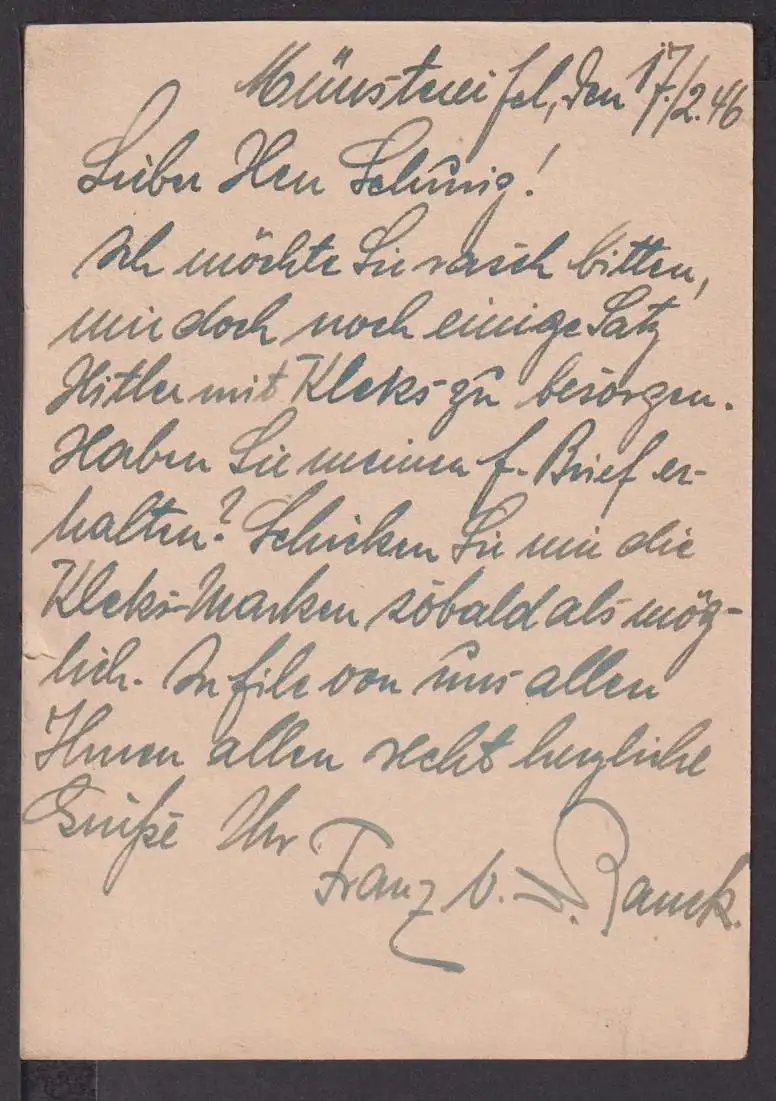 Münstereifel, den 17./2.46
Lieber Herr Schünig!
Ich möchte Sie rasch bitten,
mir doch noch einige Satz
Hitler mit Kleks zu besorgen.
Haben Sie meinen f. Brief er-
halten? Schicken Sie mir die
Kleks-Marken sobald als mög-
lich. In Eile von uns allen
Ihnen allen recht herzliche
Grüße Ihr
Franz v. d.